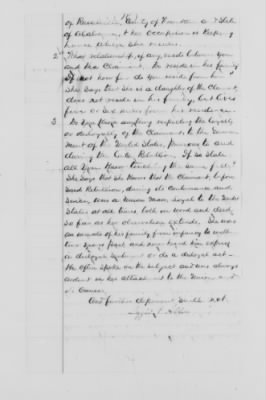 of Russellville, County of Franklin and State
of Alabama, & her Occupation is Keeping
house where she resides.
2 What relationship, if any, exists between you
and the Claimant. Do reside in his family
If not how far do you reside from him
She Says that she is a daughter of the Claimant,
does not reside in his family, but lives
five or six miles from his residence.
3 Do you know anything respecting the loyalty
or disloyalty of the Claimant, to the Govern-
ment of the United States, previous to and
during the late Rebellion, If so state
all you know touching the same fully.
She Says that she knows that the Claimant, before
said Rebellion, during its continuance and
since, was a Union Man, loyal to the United
States at all times, both in word and deed,
so far as her observation extends. She was
an inmate of his family from infancy to
and never heard him express
a disloyal sentiment or do a disloyal act.
He often spoke on the subject and was always
ardent in his attachment to the Union and
its Cause.
And further deponent saith not.